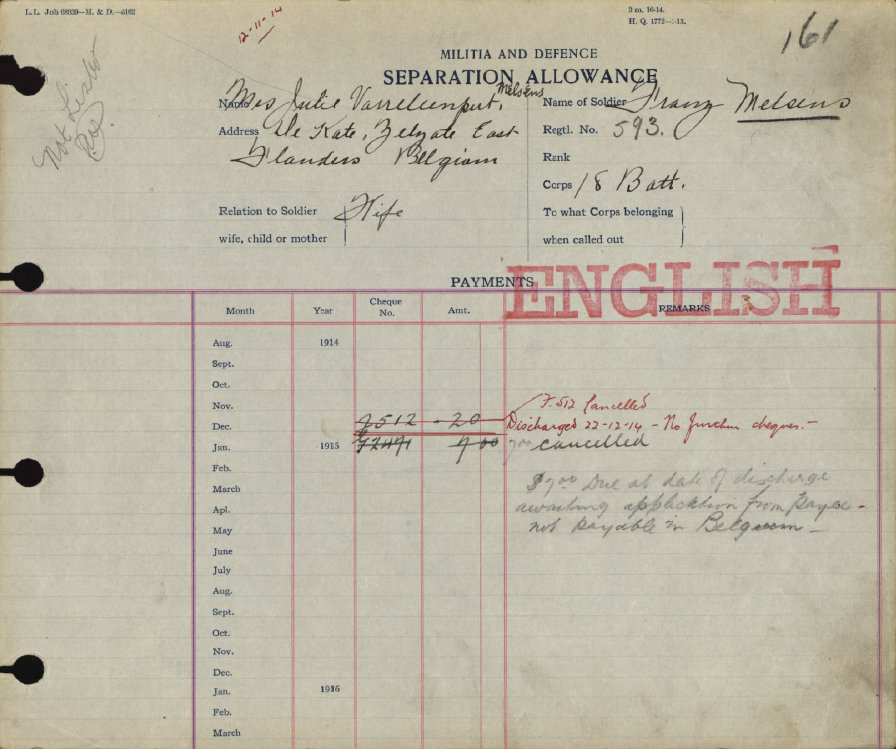 L.L. Job 68939—M. & D.—5162
12-11-14
3 m. 10-14.
H. Q. 1772
161
Not Listed
MILITIA AND DEFENCE
SEPARATION ALLOWANCE
Name Mrs Julie Melsens
Name of Soldier Franz Melsens
Address De Kate, Zelzate East
Flanders Belgium
Regtl. No. 593.
Rank
Corps 18 Batt.
Relation to Soldier
wife, child or mother
Wife
To what Corps belonging
when called out
PAYMENTS
ENGLISH
Month Year Cheque No. Amt. REMARKS
Aug. 1914
Sept.
Oct.
Nov.
F.512 Cancelled
Dec. F512 20 Discharged 22-12-14 - No further cheques. -
Jan. 1915 7 00 7 00 cancelled
Feb.
$7 00 Due at date of discharge
March
awaiting application from payee -
Apl.
not payable in Belgium -
May
June
July
Aug.
Sept.
Oct.
Nov.
Dec.
Jan. 1916
Feb.
March